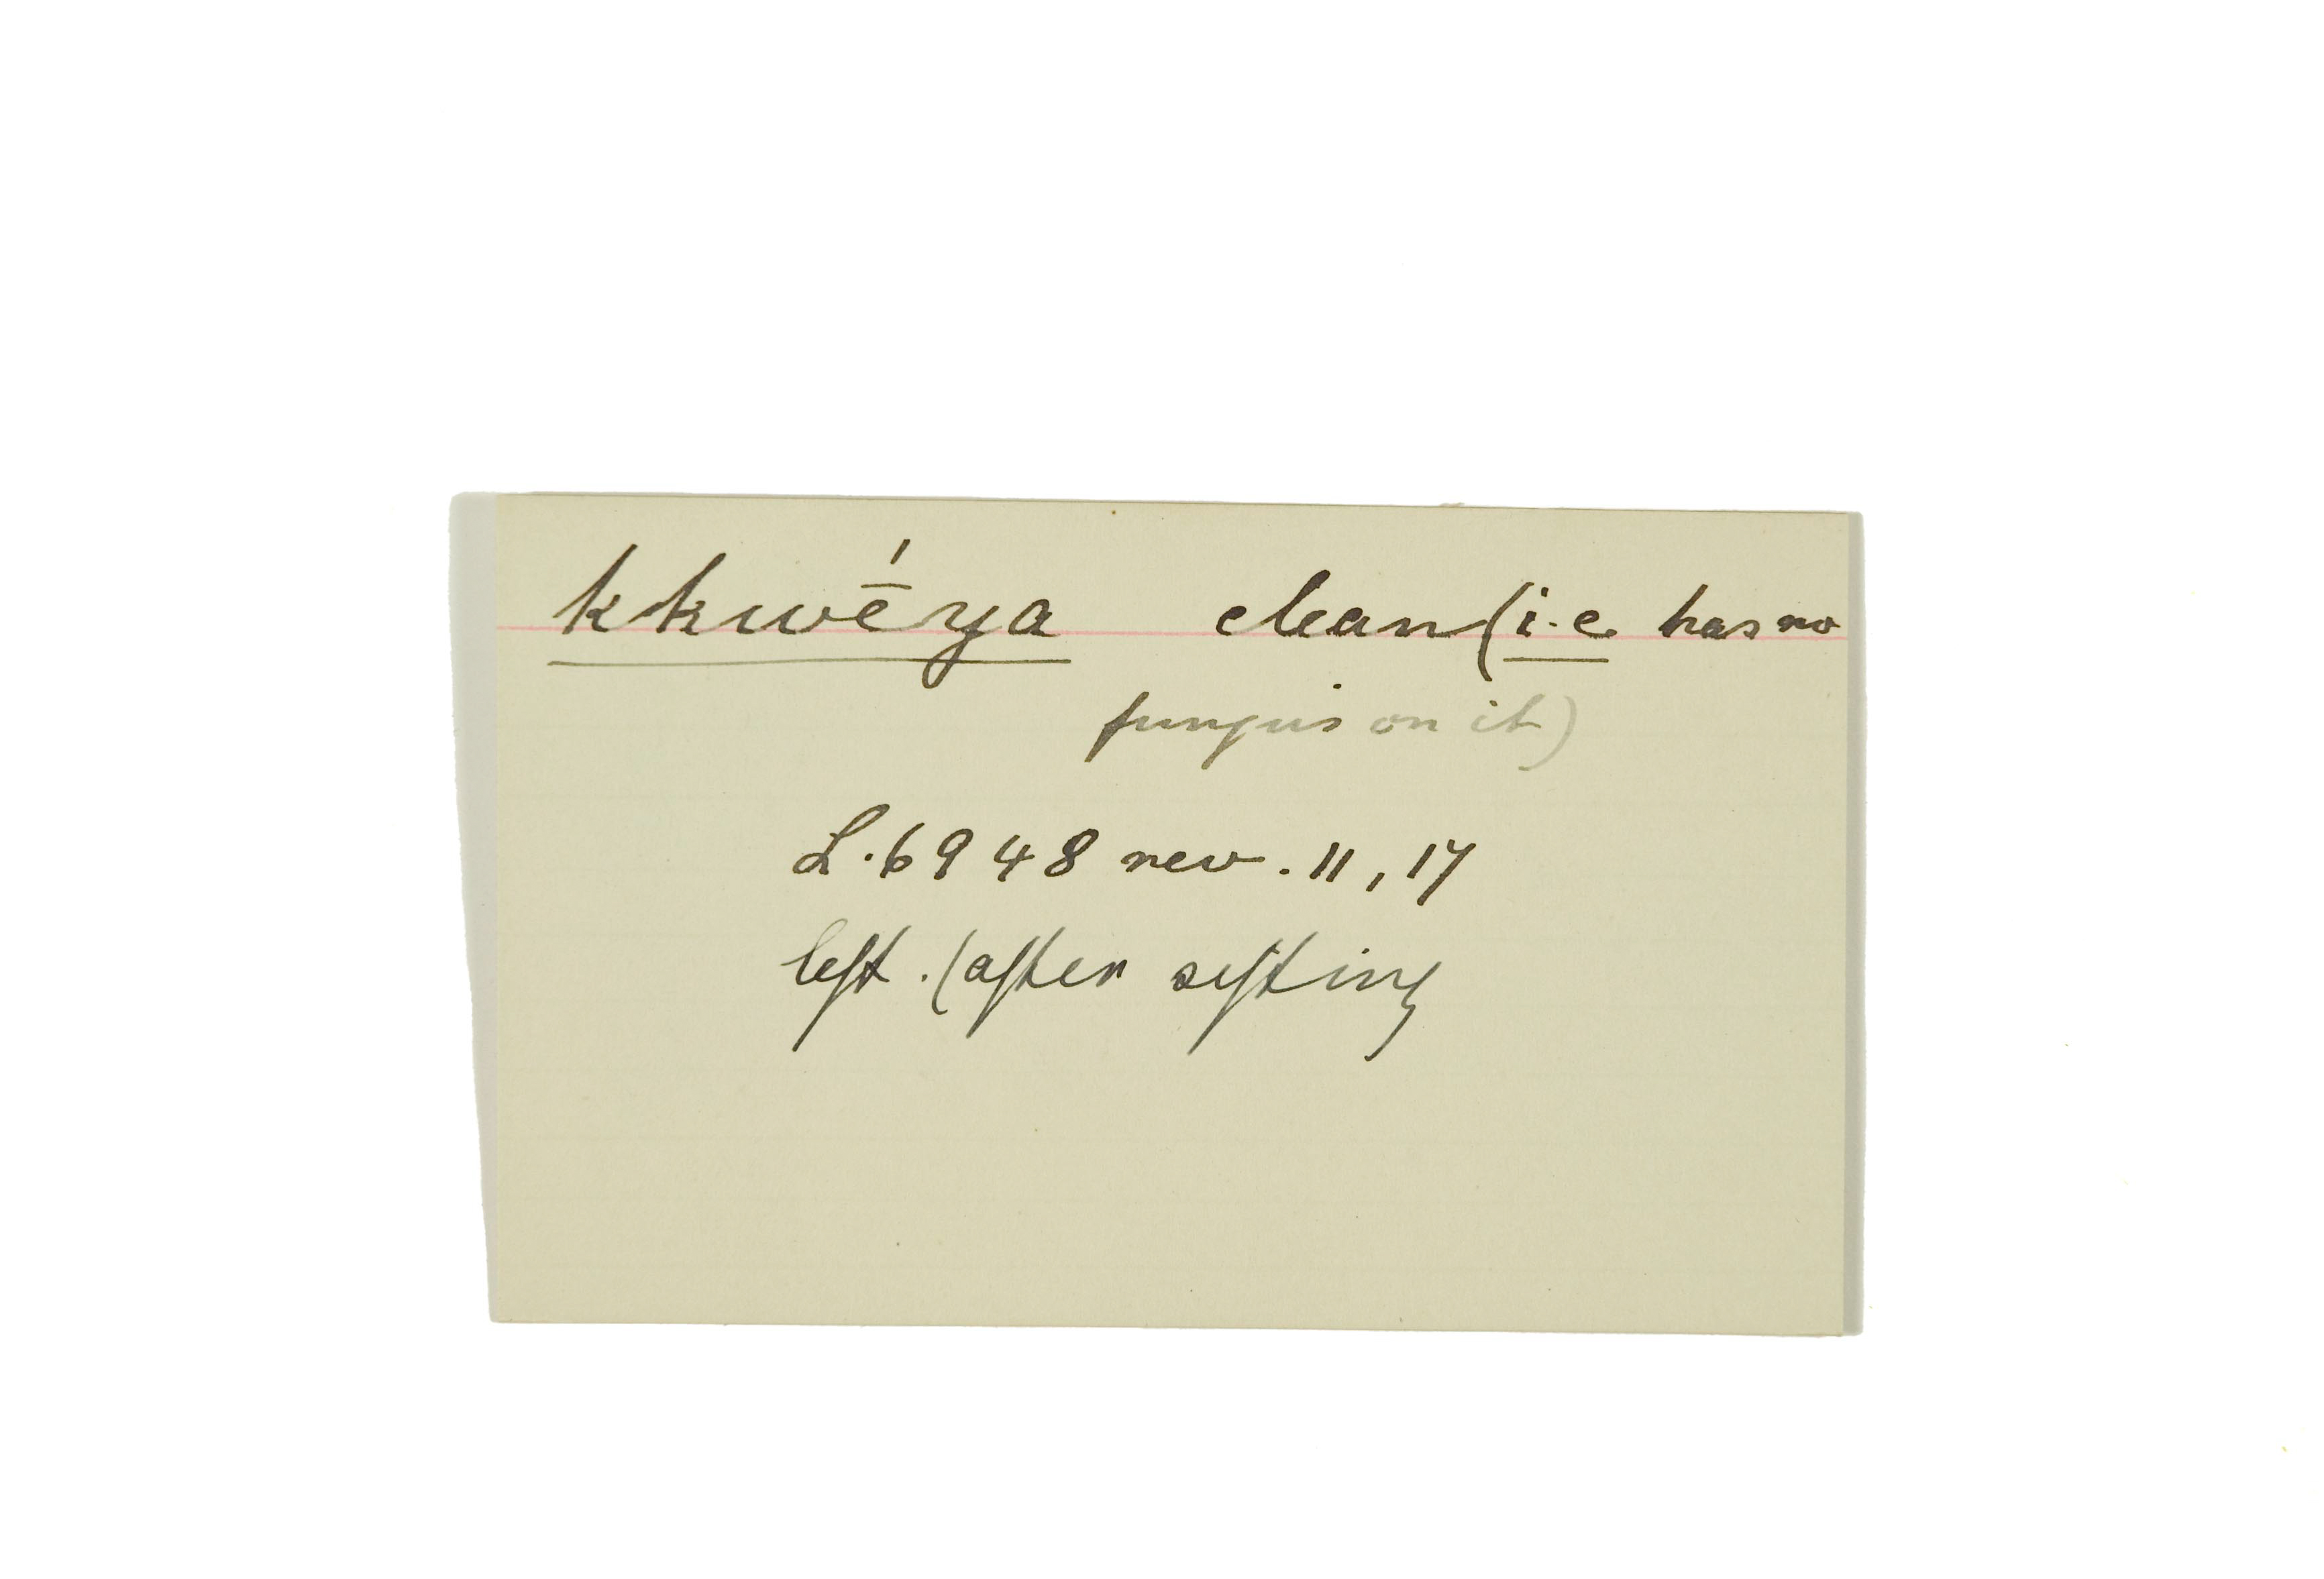 kkwḗya clean (i.e. has no
fungus on it)
L.6948 rev. 11, 17
left. (after sifting